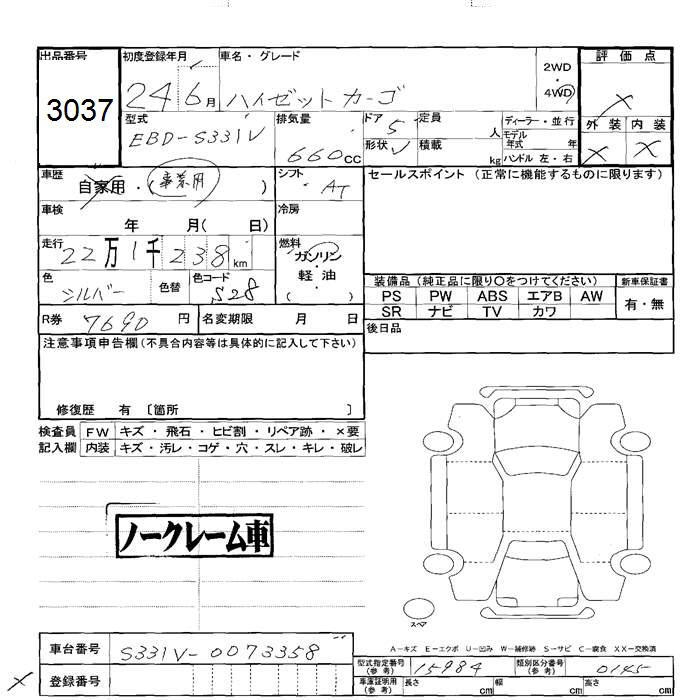 出品番号 初度登録年月 車名・グレード 評価点
3037 24 6月 ハイゼットカーゴ 2WD 4WD ×
型式 EBD-S331V 排気量 660cc ドア 5 定員 人 ディーラー・並行 外装 内装
形状 積載 kg モデル年式 年 ハンドル 左・右 × ×
車歴 自家用・(事業用) シフト AT セールスポイント (正常に機能するものに限ります)
車検 年 月( 日) 冷房
走行 22万1千238km 燃料 ガソリン
軽・油
( )
色 シルバー 色替 色コード S28 装備品 (純正品に限り〇をつけてください) 新車保証書
PS PW ABS エアB AW 有・無
SR ナビ TV カワ
R券 7690円 名変期限 月 日 後日品
注意事項申告欄(不具合内容等は具体的に記入して下さい)
修復歴 有 〔箇所 〕
検査員 FW キズ・飛石・ヒビ割・リペア跡・×要
記入欄 内装 キズ・汚レ・コゲ・穴・スレ・キレ・破レ
ノークレーム車
スペア
A－キズ E－エクボ U－凹み W－補修跡 S－サビ C－腐食 XX－交換済
車台番号 S331V-0073358 型式指定番号(参考) 15984 類別区分番号(参考) 0145
× 登録番号 車庫証明用(参考) 長さ cm 幅 cm 高さ cm